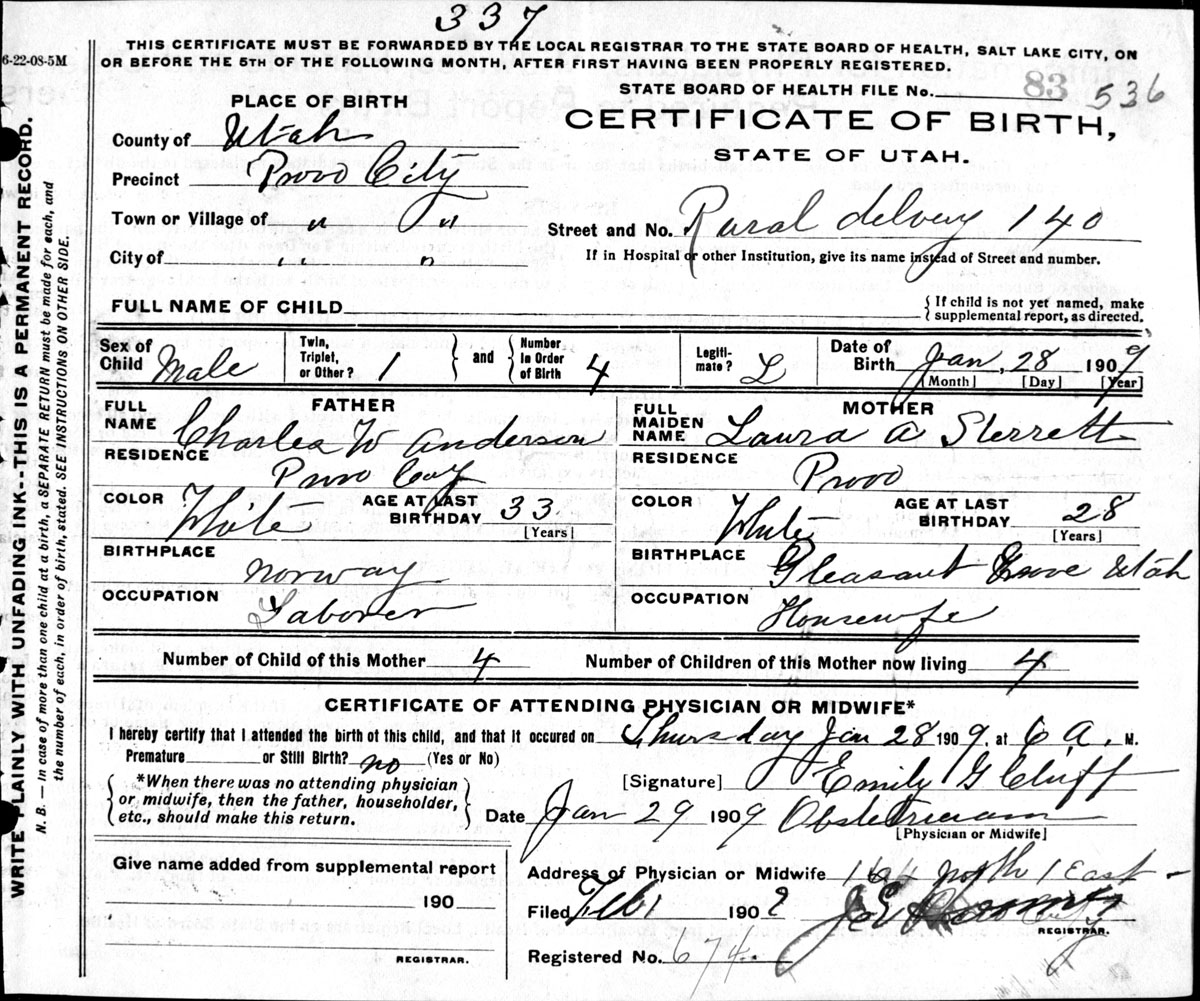 337
6-22-08-5M
THIS CERTIFICATE MUST BE FORWARDED BY THE LOCAL REGISTRAR TO THE STATE BOARD OF HEALTH, SALT LAKE CITY, ON
OR BEFORE THE 5TH OF THE FOLLOWING MONTH, AFTER FIRST HAVING BEEN PROPERLY REGISTERED.
STATE BOARD OF HEALTH FILE No. 83 536
PLACE OF BIRTH
CERTIFICATE OF BIRTH,
STATE OF UTAH.
County of Utah
Precinct Provo City
Town or Village of " "
Street and No. Rural delvery 140
City of " "
If in Hospital or other Institution, give its name instead of Street and number.
FULL NAME OF CHILD
{ If child is not yet named, make
supplemental report, as directed.
Sex of Child Male Twin, Triplet, or Other? 1 } and { Number in Order of Birth 4 Legiti- mate? L Date of Birth Jan, 28 1909
[Month] [Day] [Year]
FATHER
FULL NAME Charles W Anderson
RESIDENCE Provo City
COLOR White AGE AT LAST BIRTHDAY 33
[Years]
BIRTHPLACE Norway
OCCUPATION Laborer
MOTHER
FULL MAIDEN NAME Laura A Sterrett
RESIDENCE Provo
COLOR White AGE AT LAST BIRTHDAY 28
[Years]
BIRTHPLACE Pleasant Grove Utah
OCCUPATION Housewife
Number of Child of this Mother 4 Number of Children of this Mother now living 4
CERTIFICATE OF ATTENDING PHYSICIAN OR MIDWIFE*
I hereby certify that I attended the birth of this child, and that it occured on Thursday Jan 28 1909. at 6 A. M.
Premature or Still Birth? no (Yes or No)
{ *When there was no attending physician
or midwife, then the father, householder,
etc., should make this return. }
[Signature] Emily G Cluff
Date Jan 29 1909 Obstetrician
[Physician or Midwife]
Give name added from supplemental report
190
REGISTRAR.
Address of Physician or Midwife north 1 East
Filed Feb 1 1909
REGISTRAR.
Registered No. 674
WRITE PLAINLY WITH UNFADING INK--THIS IS A PERMANENT RECORD.
N. B. — In case of more than one child at a birth, a SEPARATE RETURN must be made for each, and
the number of each, in order of birth, stated. SEE INSTRUCTIONS ON OTHER SIDE.